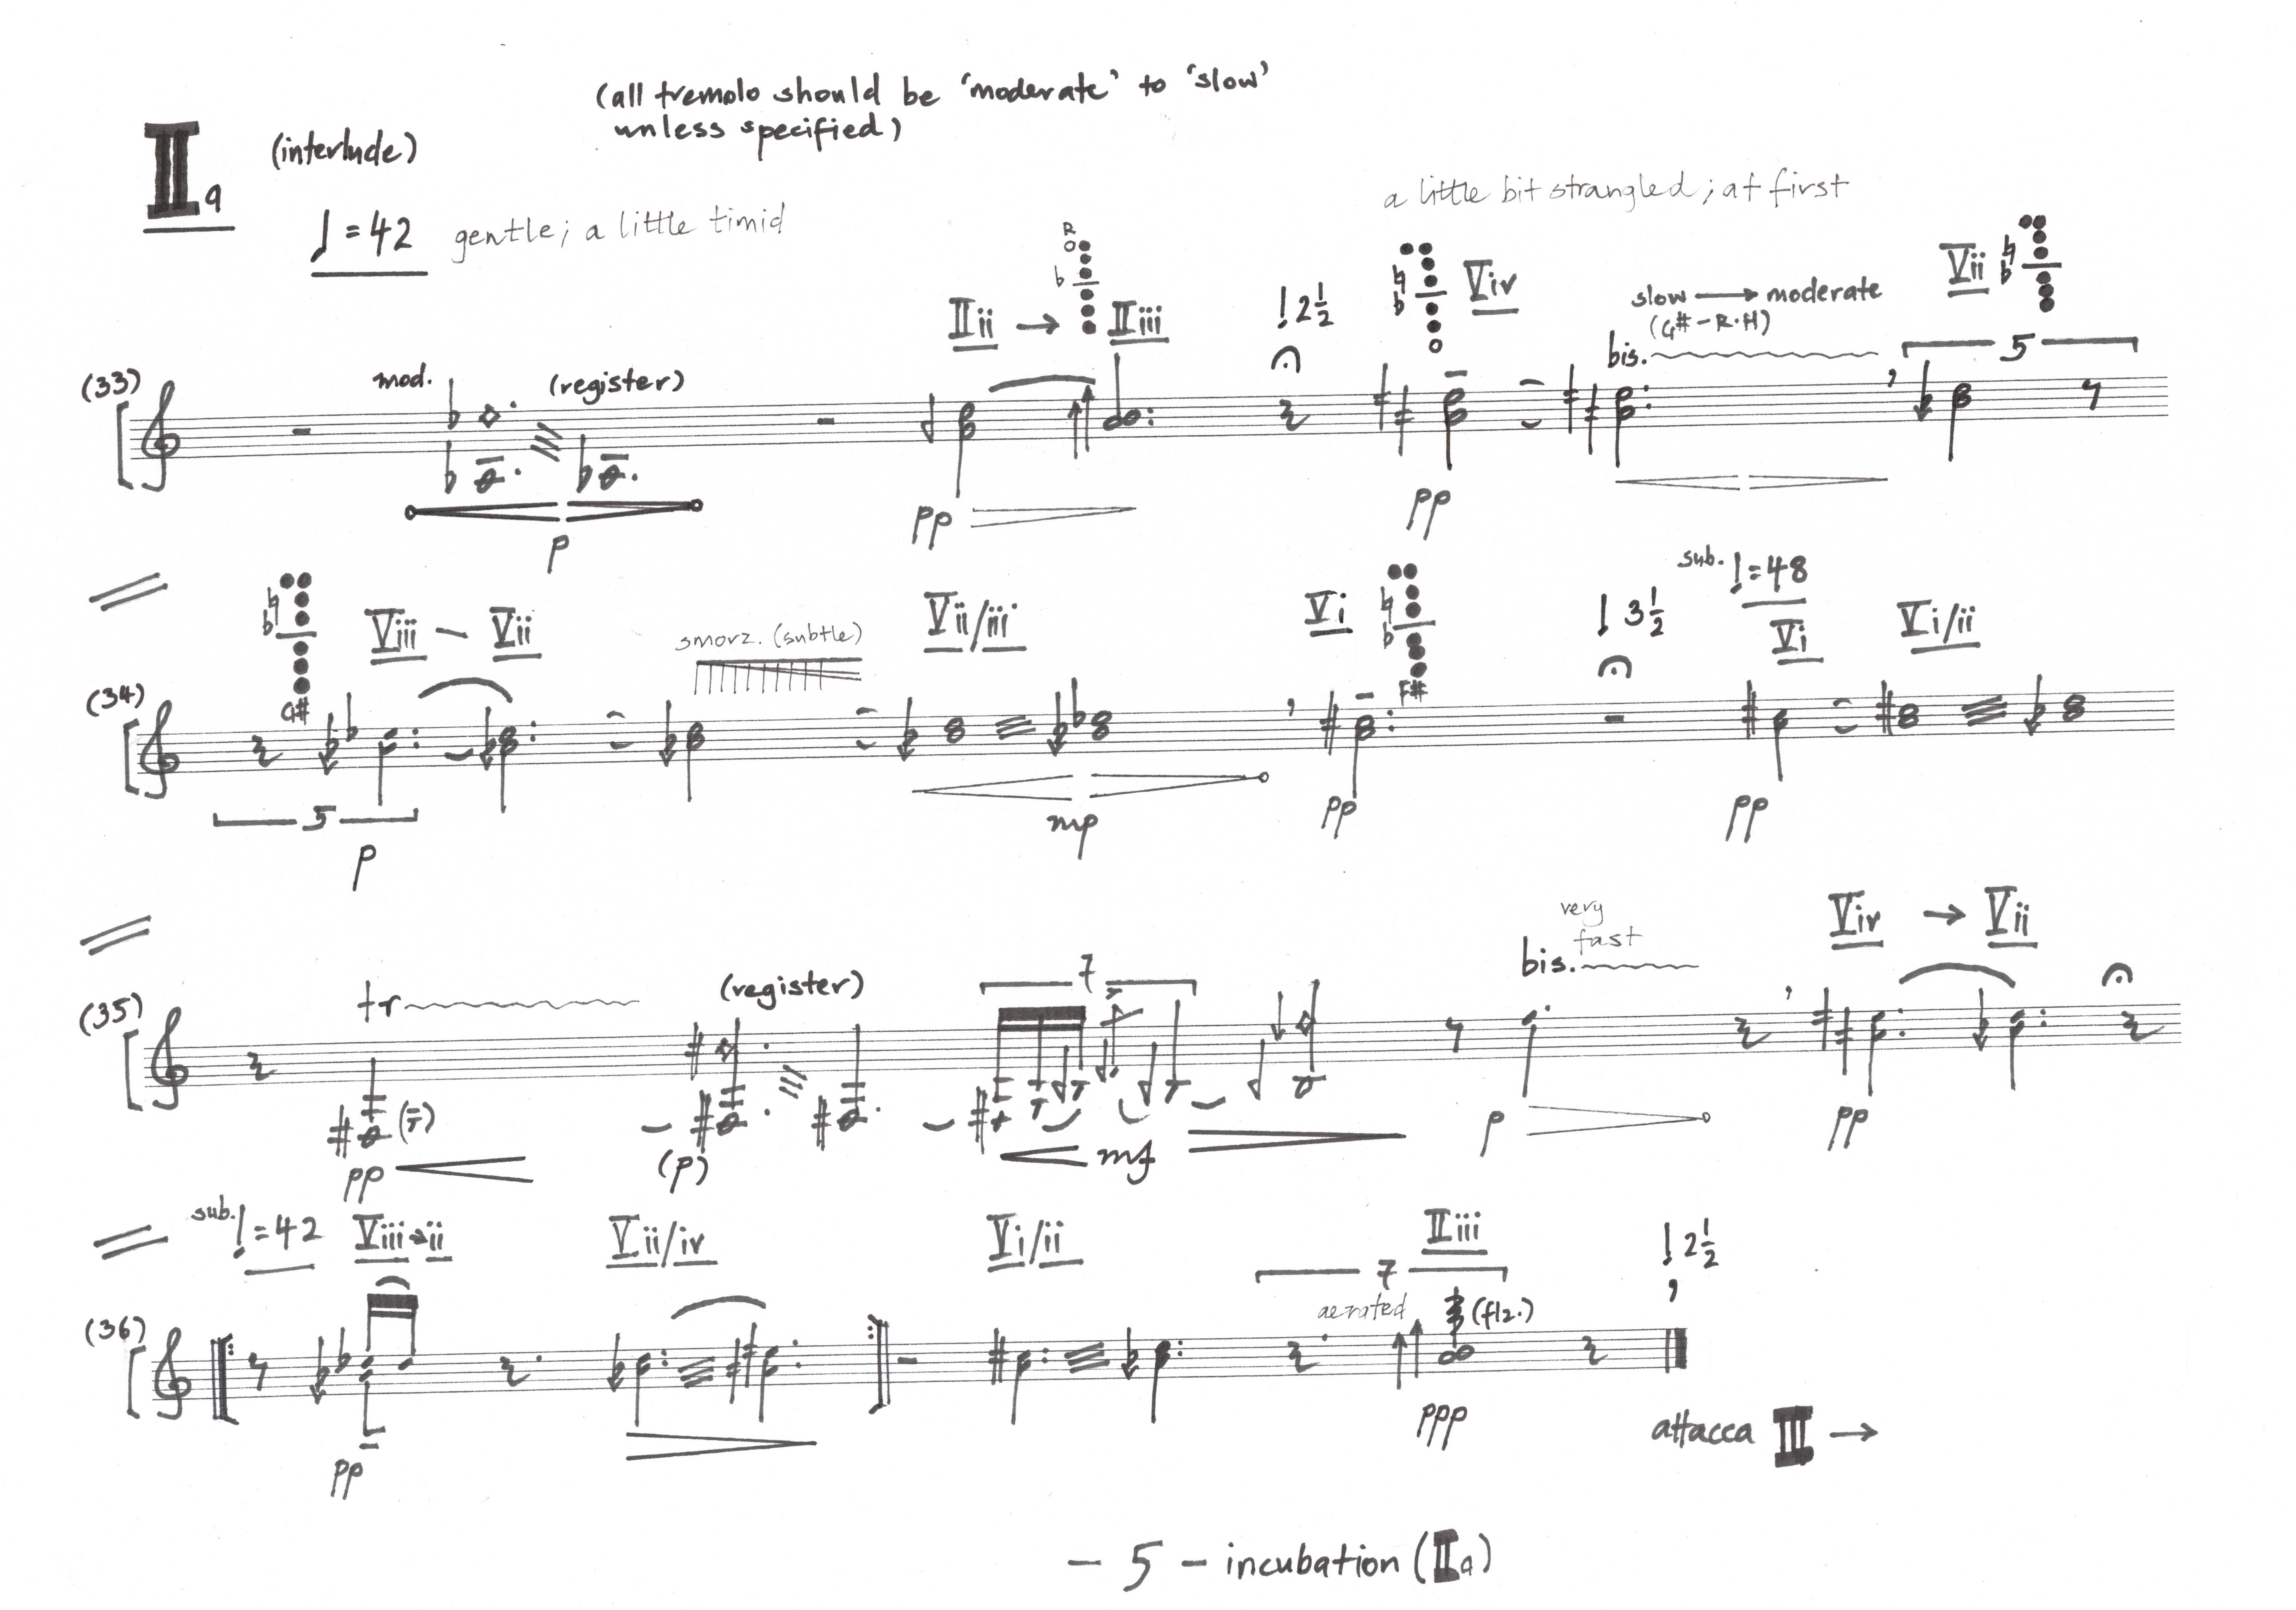 (all tremolo should be 'moderate' to 'slow'
unless specified)
IIa (interlude)
♩=42 gentle; a little timid
a little bit strangled; at first
R
IIii → IIiii
♩ 2½
Viv
slow → moderate
(G#-R.H)
Vii
(33)
mod.
(register)
bis.
5
p
pp
pp
Viii – Vii
G#
smorz. (subtle)
Vii/iii
Vi
F#
♩ 3½
sub. ♩=48
Vi
Vi/ii
(34)
5
p
mp
pp
pp
very
fast
Viv → Vii
(35)
tr
(register)
7
bis.
pp
(p)
mf
p
pp
sub. ♩=42
Viii→ii
Vii/iv
Vi/ii
IIiii
♩ 2½
7
aerated
(flz.)
(36)
pp
ppp
attacca III →
- 5 - incubation (IIa)